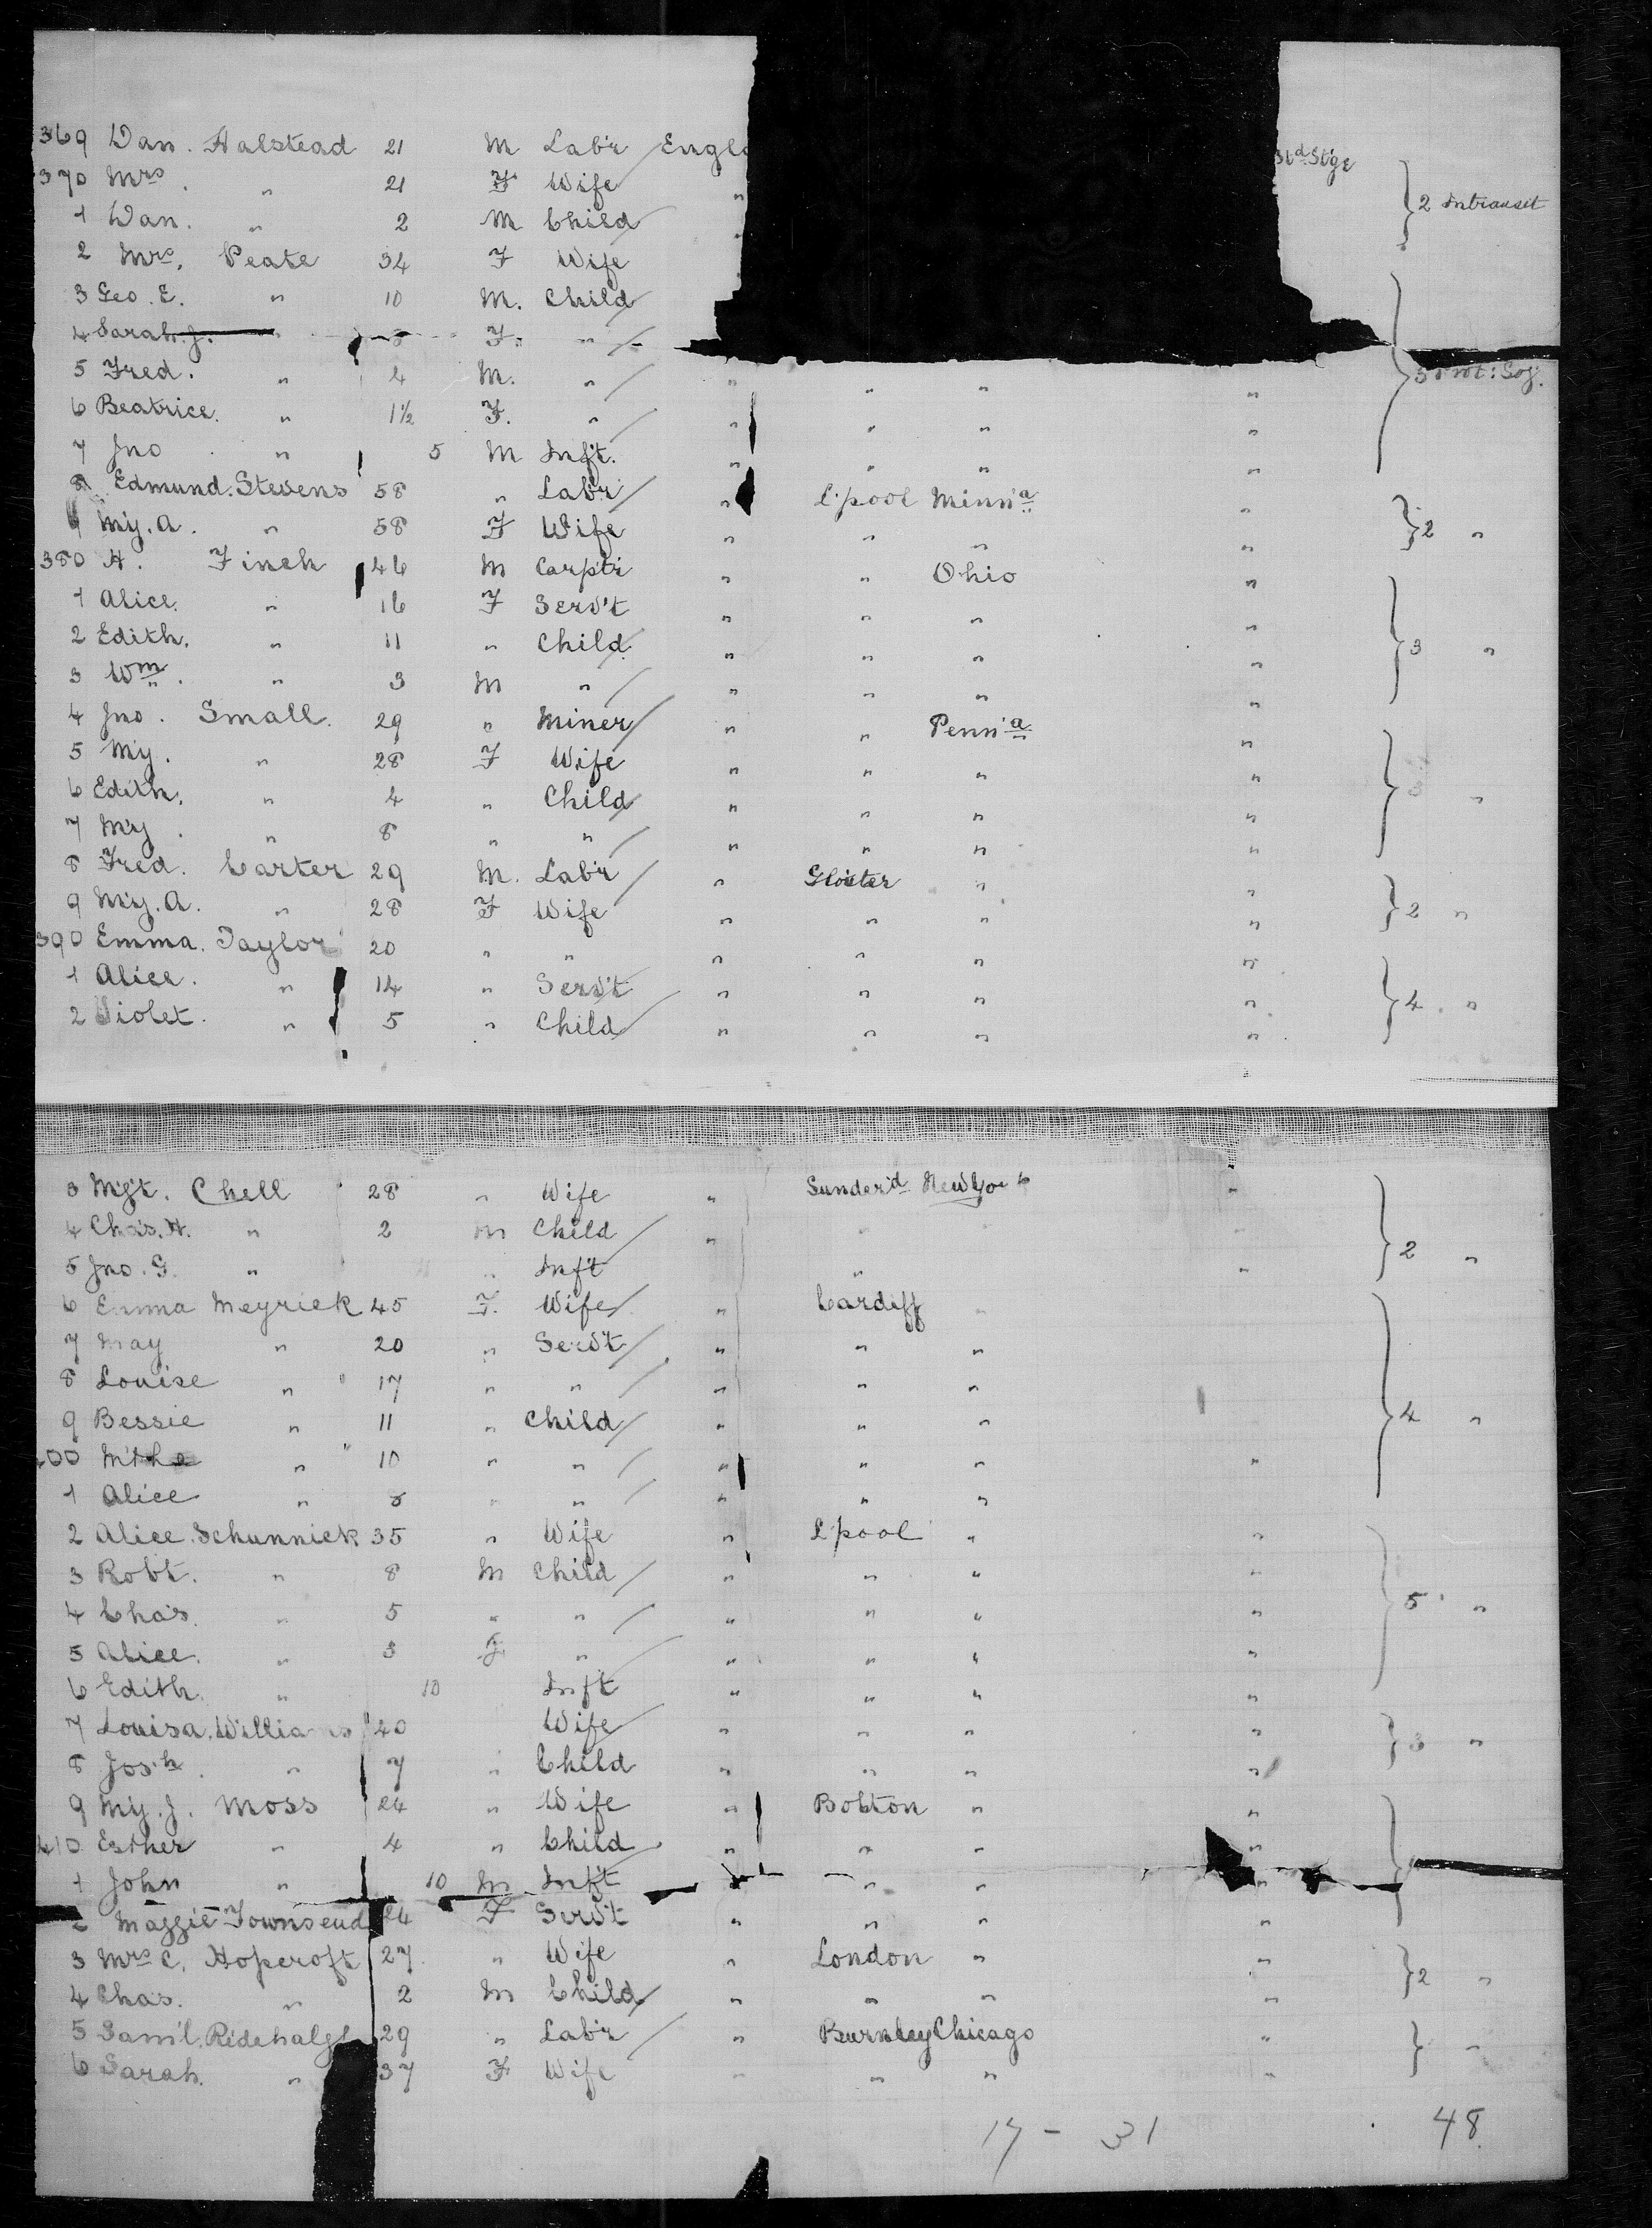 369 Dan. Halstead 21 M Lab'r Engl 3rd Stge
370 Mrs. " 21 F Wife " 2 Intransit
1 Dan. " 2 M Child
2 Mrs. Peate 34 F Wife
3 Geo. E. " 10 M. Child
4 Sarah. J. " F. "
5 Fred. " 4 M. " " " " "
6 Beatrice. " 1½ F. " " " " "
7 Jno " 5 M Inft. " " " "
8 Edmund. Stevens 58 " Lab'r " L'pool Minn'a
9 My. A. " 58 F Wife " " " " 2 "
380 H. Finch 46 M Carpt'r " " Ohio "
1 Alice. " 16 F Serv't " " " "
2 Edith. " 11 " Child " " " " 3 "
3 Wm. " 3 M " " " " "
4 Jno. Small. 29 " Miner " " Penn'a "
5 My. " 28 F Wife " " " "
6 Edith. " 4 " Child " " " " 3 "
7 My. " 8 " " " " " "
8 Fred. Carter 29 M. Lab'r " Glo'ster " "
9 My. A. " 28 F Wife " " " " 2 "
390 Emma. Taylor 20 " " " " " "
1 Alice. " 14 " Serv't " " " " 4 "
2 Violet. " 5 " Child " " " "
3 Mgt. Chell 28 " Wife " Sunder'd New York "
4 Chas. H. " 2 M Child " " " " 2 "
5 Jno. G. " " Inft " "
6 Emma Meyrick 45 F. Wife " Cardiff "
7 May " 20 " Serv't " " "
8 Louise " 17 " " " " "
9 Bessie " 11 " Child " " " 4 "
400 " 10 " " " " " "
1 Alice " 8 " " " " "
2 Alice. Schunnick 35 " Wife " L'pool " "
3 Robt. " 8 M Child " " " "
4 Chas. " 5 " " " " " " 5 "
5 Alice. " 3 F " " " " "
6 Edith. " 10 Inft " " " "
7 Louisa. Williams 40 Wife " " " " 3 "
8 Jos'h. " 7 " Child " " " "
9 My. J. Moss 24 " Wife " Bolton " "
410 Esther " 4 " Child " " " "
1 John " 10 M Inft " " "
2 Maggie Townsend 24 F Serv't " " " "
3 Mrs C. Hopcroft 27 " Wife " London " "
4 Chas. " 2 M Child " " " " 2 "
5 Sam'l. Ridehalgh 29 " Lab'r " Burnley Chicago " "
6 Sarah. " 37 F Wife " " " "
17 - 31 48